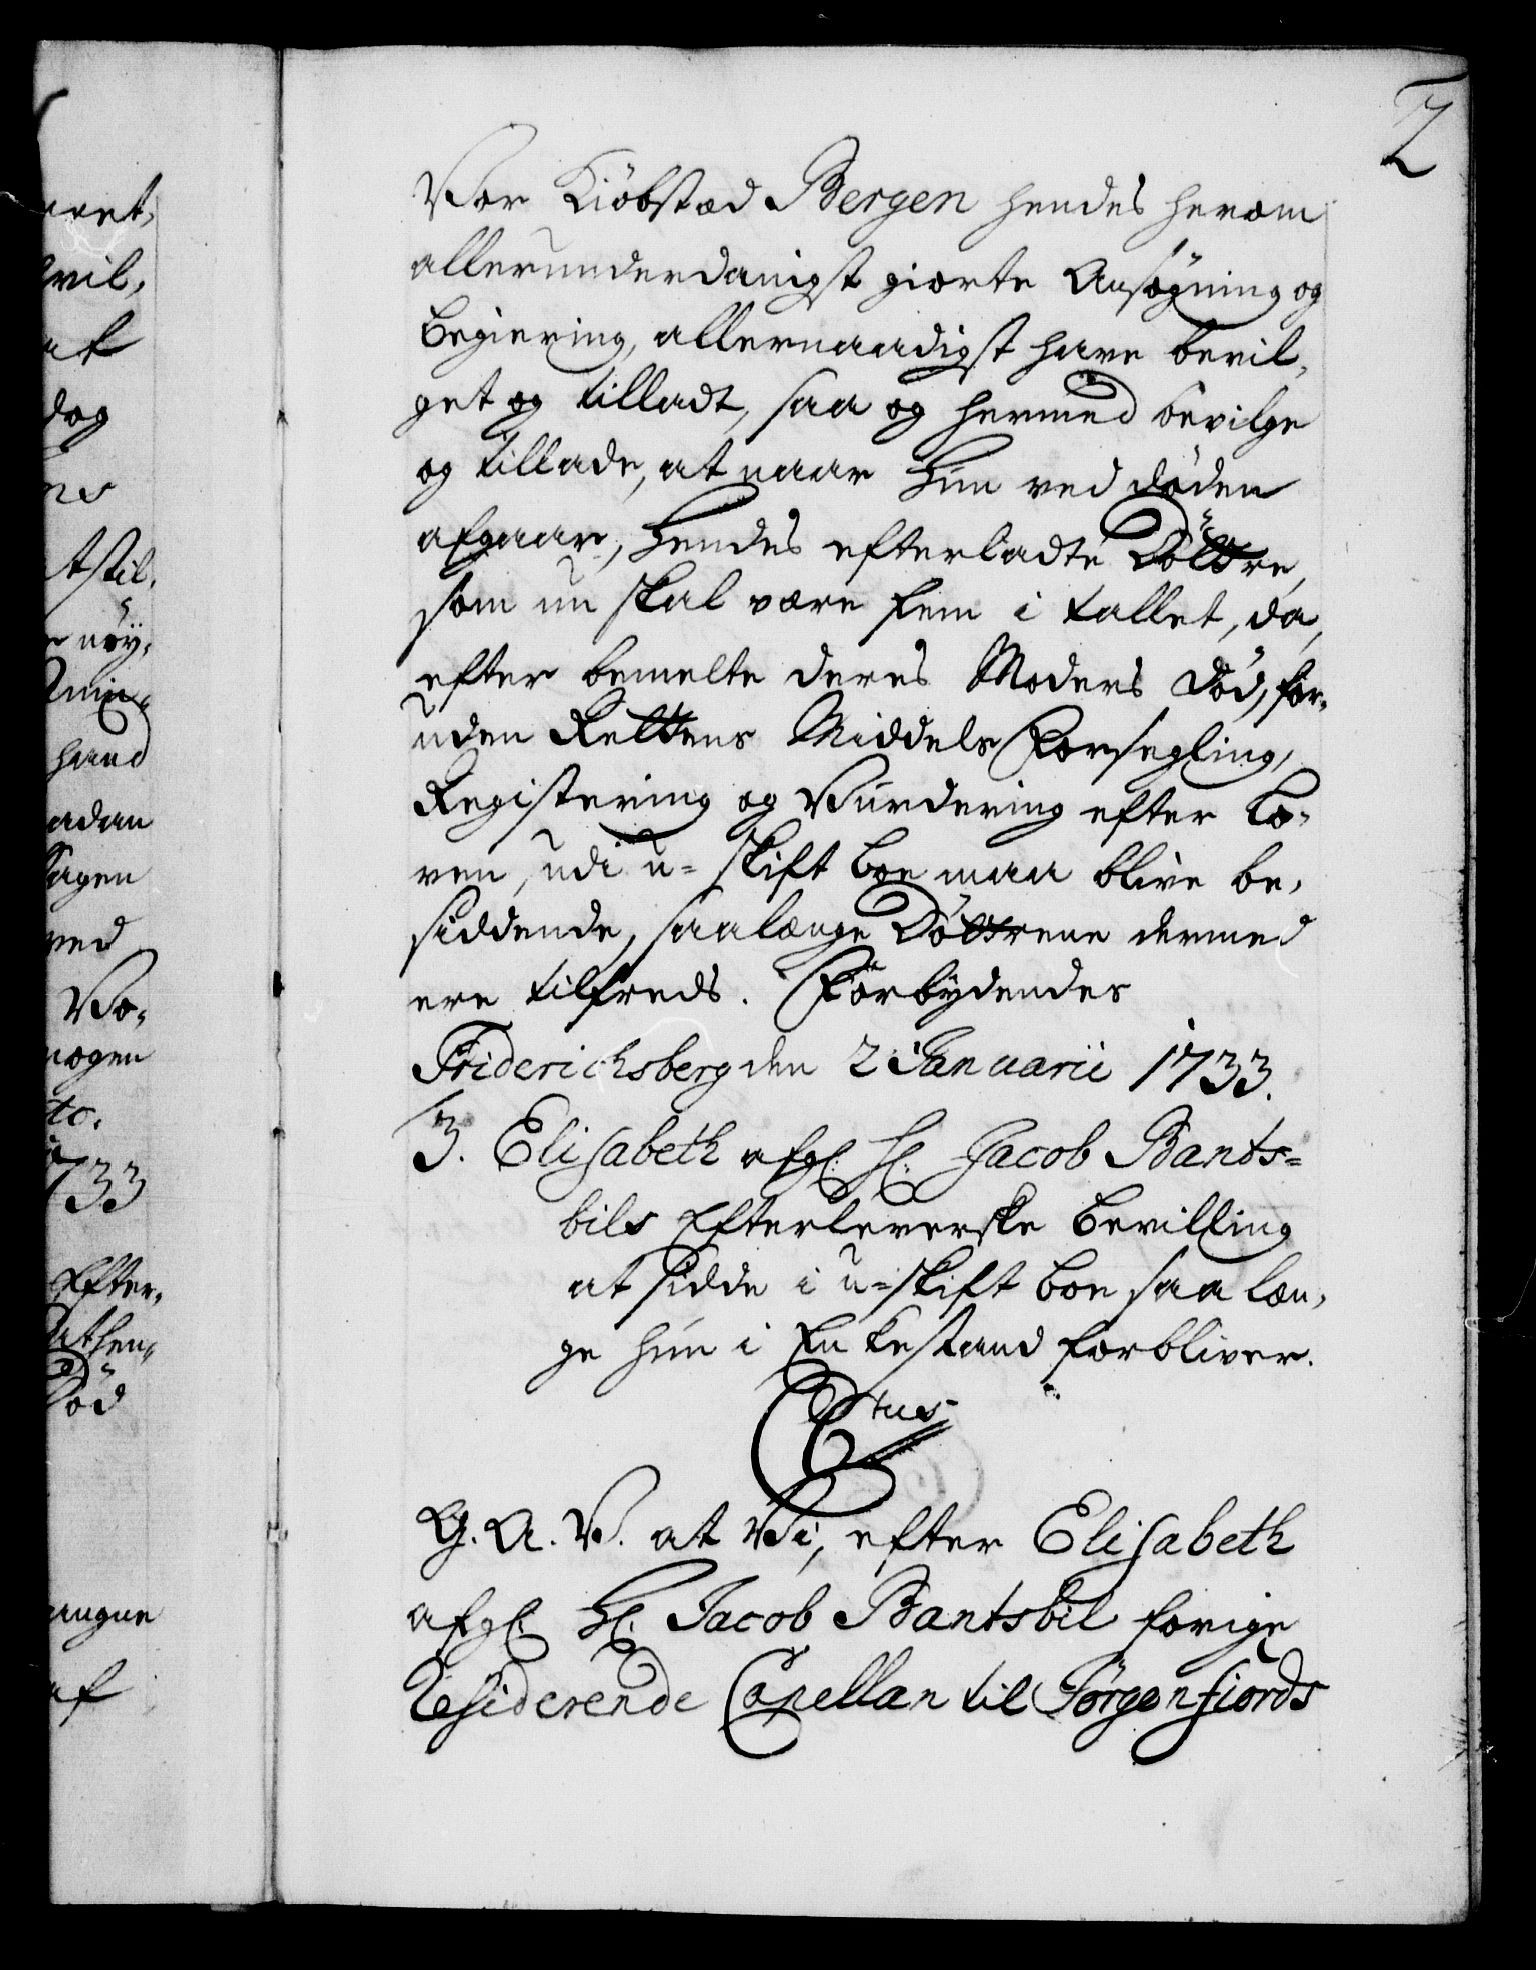 2
Vor Kiöbstæd Bergen hendes herom
allerunderdanigst giorte Ansøgning og
begiering, allernaadigst have bevil,
get og tilladt, saa og hermed bevilge
og tillade, at naar Hun ved döden
afgaar, hendes efterladte Döttre,
som nu skal være fem i tallet, da,
efter bemelte deres Moders Död, for,,
uden Rettens Middels Forsegling,
Registering og Vurdering efter Lo,
ven, udi u=skift boe maa blive be,
siddende, saalænge Döttrene dermed
ere tilfreds. Forbydendes
Friderichsberg den 2 Januarii 1733.
3. Elisabeth afgl: Hl: Jacob Bants=
bils Efterleverske Bevilling
at sidde i u=skift boe saa læn,
ge hun i Enkestand forbliver.
C6tus
G. A. V. at Vi, efter Elisabeth
afgl: Hl: Jacob Bantsbil forige
Residerende Capellan til Jörgenfiords
aret,
vil,
at
dog
ns
tstil,
nöy,
hand
adan
agen
ved
Vo,
nogen
tc.
1733
Efter,
athen,,
Död
angne
af